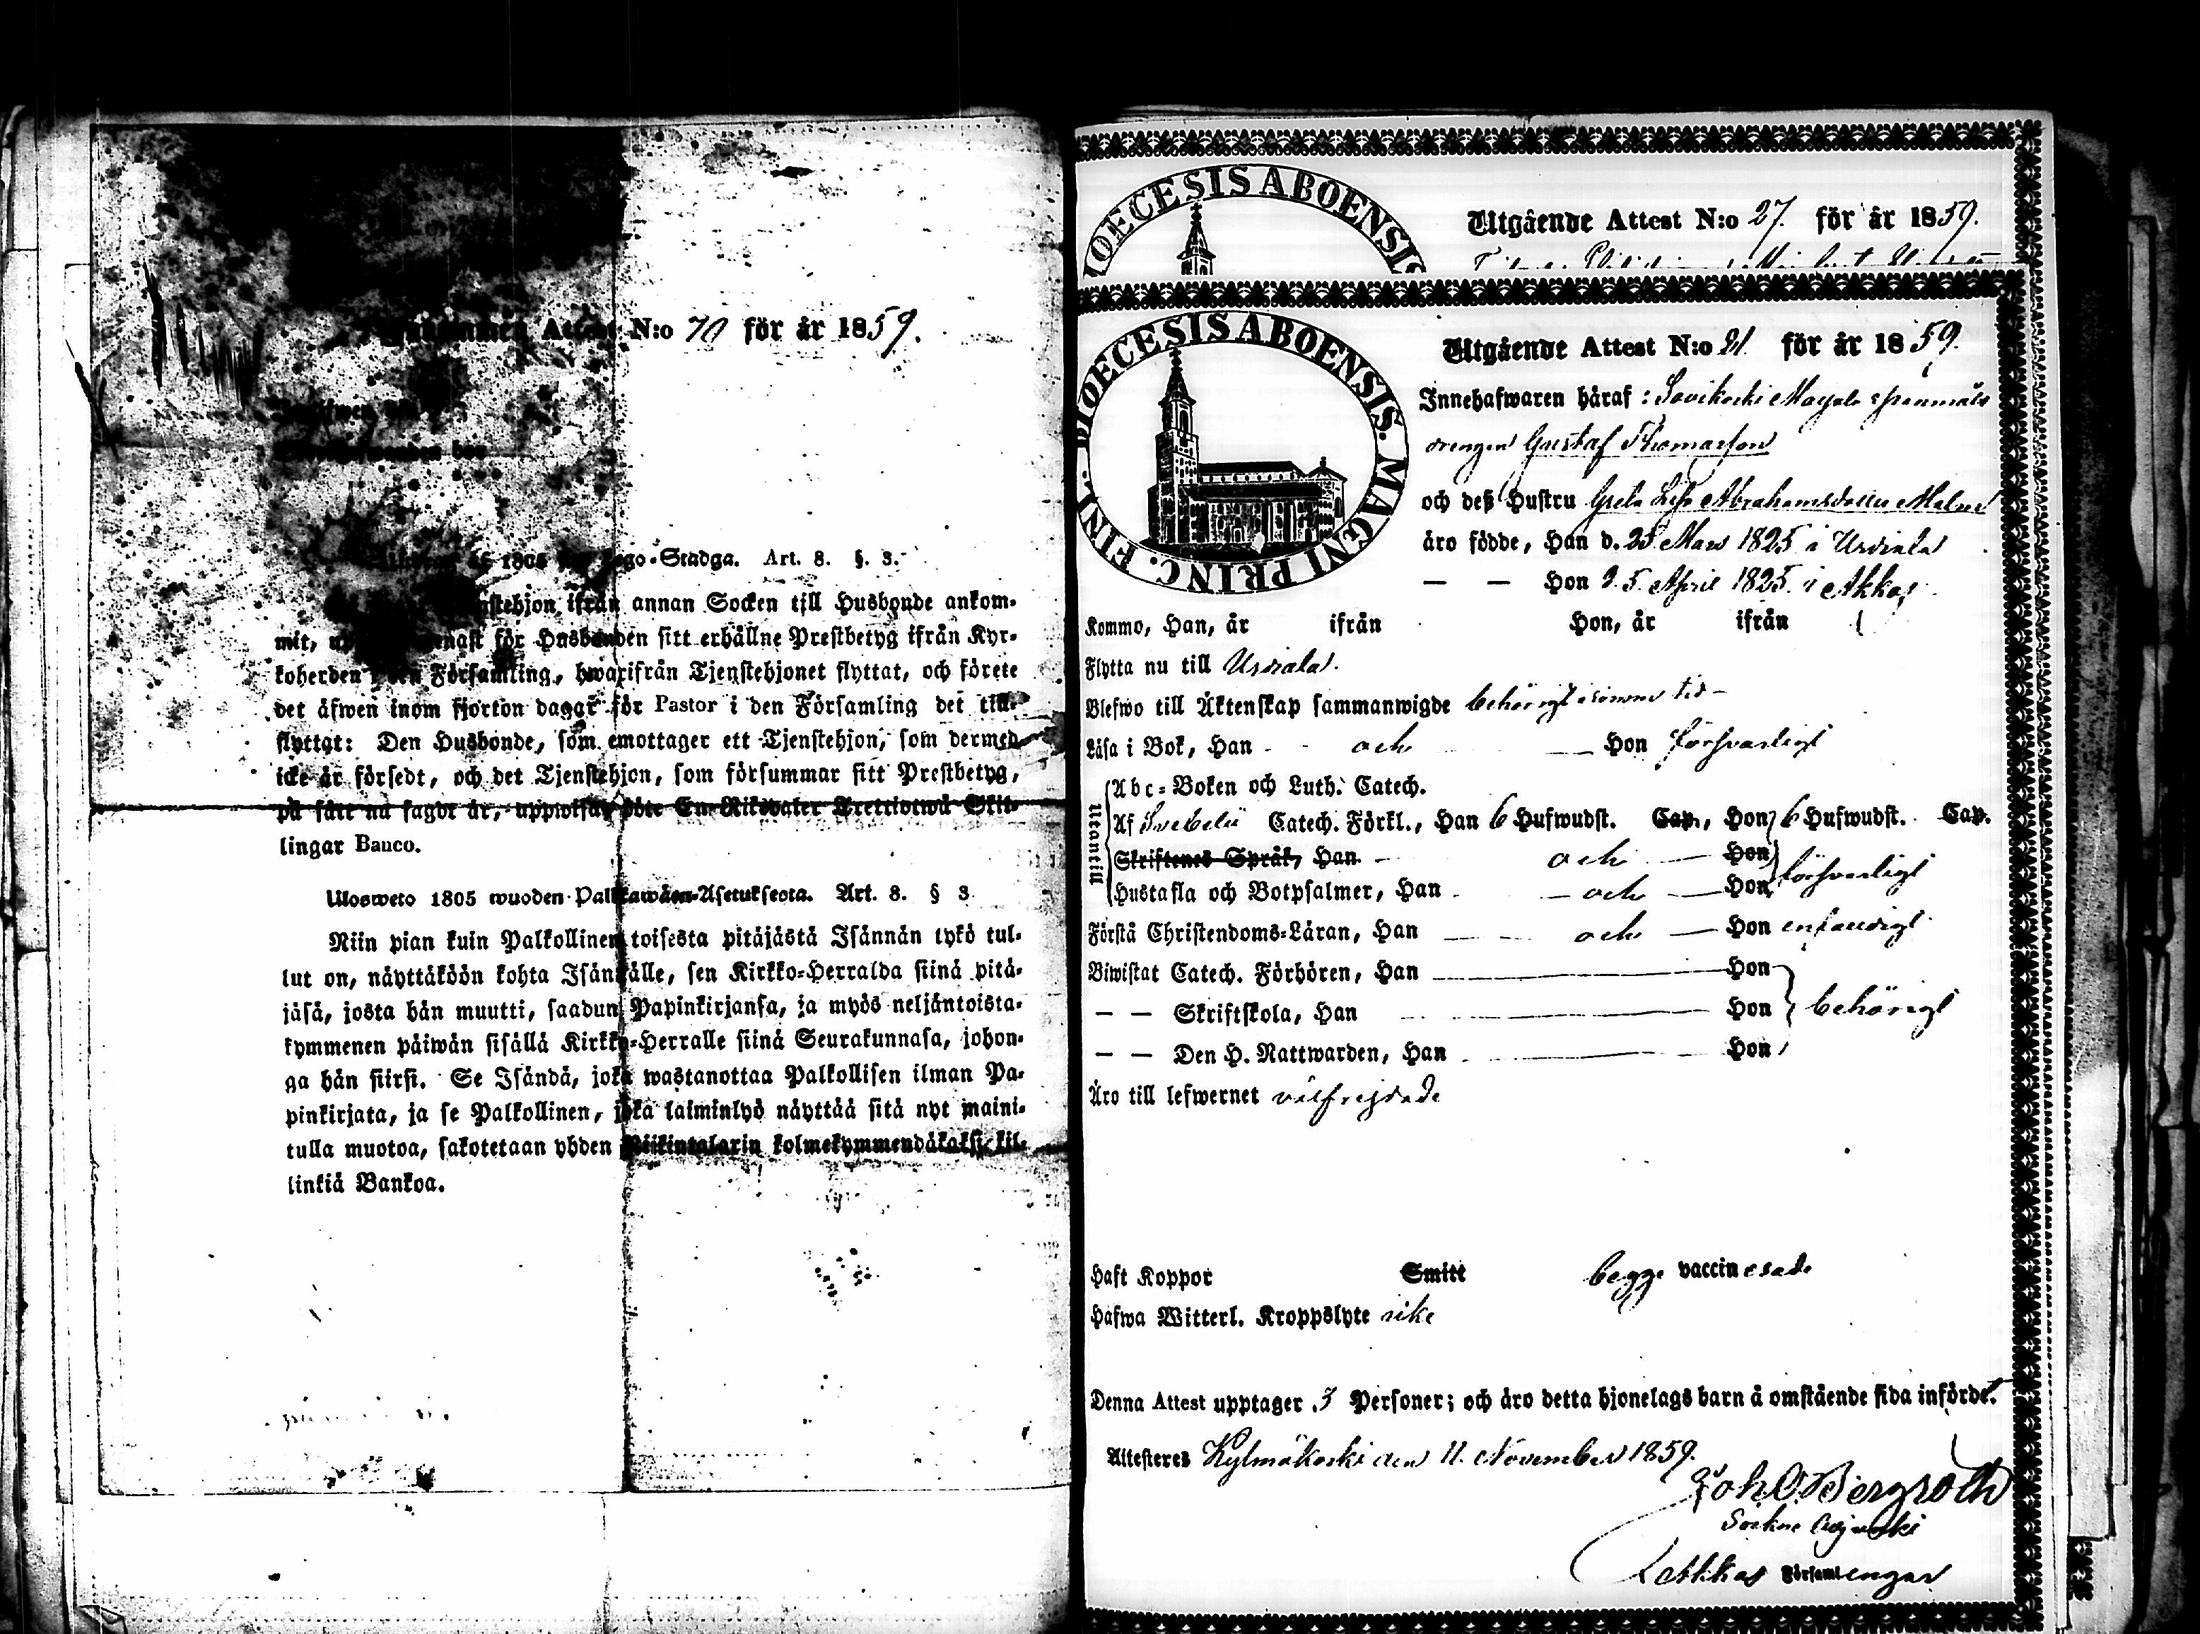 Attest N:o 70 för år 1859.
1805 Lego-Stadga. Art. 8. §. 3.
ifrån annan Socken till Husbonde ankom-
mit, för Husbonden sitt erhållne Prestbetyg ifrån Kyr-
koherden i den Församling, hwarifrån Tjenstehjonet flyttat, och förete
det äfwen inom fjorton dagar för Pastor i den Församling det till-
flyttat: Den Husbonde, som emottager ett Tjenstehjon, som dermed
icke är försedt, och det Tjenstehjon, som försummar sitt Prestbetyg,
på sätt nu sagdt är, uppwisa, böte En Riksdaler Trettiotwå Skil-
lingar Banco.
Ulosweto 1805 wuoden Palkkawäen-Asetuksesta. Art. 8. § 3
Niin pian kuin Palkollinen toisesta pitäjästä Isännän tykö tul-
lut on, näyttäköön kohta Isännälle, sen Kirkko-Herralda siinä pitä-
jäsä, josta hän muutti, saadun Papinkirjansa, ja myös neljäntoista-
kymmenen päiwän sisällä Kirkko-Herralle siinä Seurakunnasa, johon-
ga hän siirsi. Se Isändä, joka wastanottaa Palkollisen ilman Pa-
pinkirjata, ja se Palkollinen, joka laiminlyö näyttää sitä nyt maini-
tulla muotoa, sakotetaan yhden Riikintalarin kolmekymmendäkaksi kil-
linkiä Bankoa.
DIOECESIS ABOENSIS
Utgående Attest N:o 27. för år 1859.
DIOECESIS ABOENSIS. MAGNI PRINC. FINL.
Utgående Attest N:o 21 för år 1859.
Innehafwaren häraf: Savikoski
drengen Gustaf Thomasson
och deß Hustru Greta Lisa Abrahamsdotter Malm
äro födde, Han d. 25 Mars 1825 i Urdiala
— — Hon d. 5. April 1825. i Akkas
Kommo, Han, år ifrån Hon, år ifrån
Flytta nu till Urdiala.
Blefwo till Äktenskap sammanwigde behörigt
Läsa i Bok, Han - och — Hon försvarligt
Utantill
Abc-Boken och Luth. Catech.
Af Svebelii Catech. Förkl., Han 6 Hufwudst. Cap., Hon 6 Hufwudst. Cap.
Skriftenes Språk, Han - och — Hon försvarligt
Hustafla och Botpsalmer, Han - och — Hon
Förstå Christendoms-Läran, Han — och — Hon enfaldigt
Biwistat Catech. Förhören, Han — Hon
— — Skriftskola, Han — Hon behörigt
— — Den H. Nattwarden, Han — Hon
Äro till lefwernet välfrejdade
Haft Koppor Smitt begge vaccinerade
Hafwa Witterl. Kroppslyte icke
Denna Attest upptager 3 Personer; och äro detta hjonelags barn å omstående sida införde.
Attesteres Kylmäkoski den 11. November 1859.
Joh O. Bergroth
Sockne
Akkas Församlingar